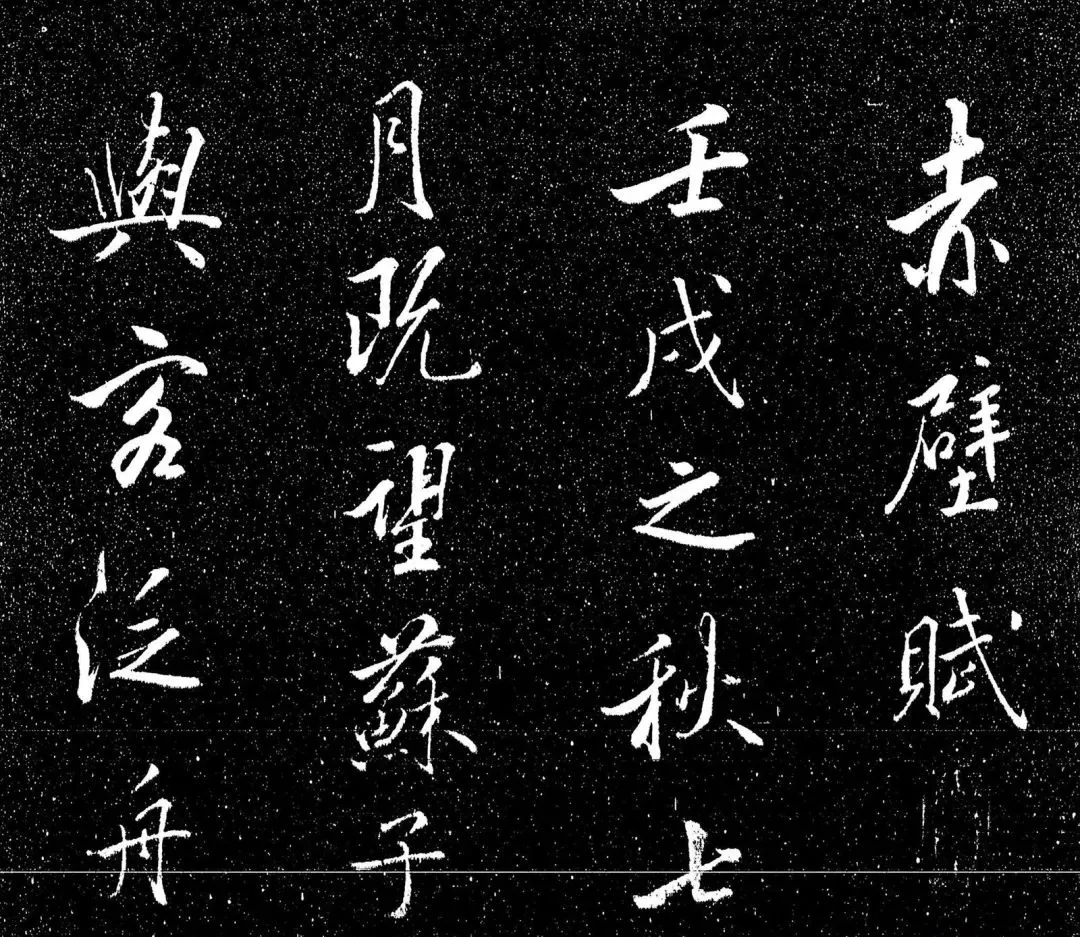 赤壁賦
壬戌之秋七
月既望蘇子
與客泛舟